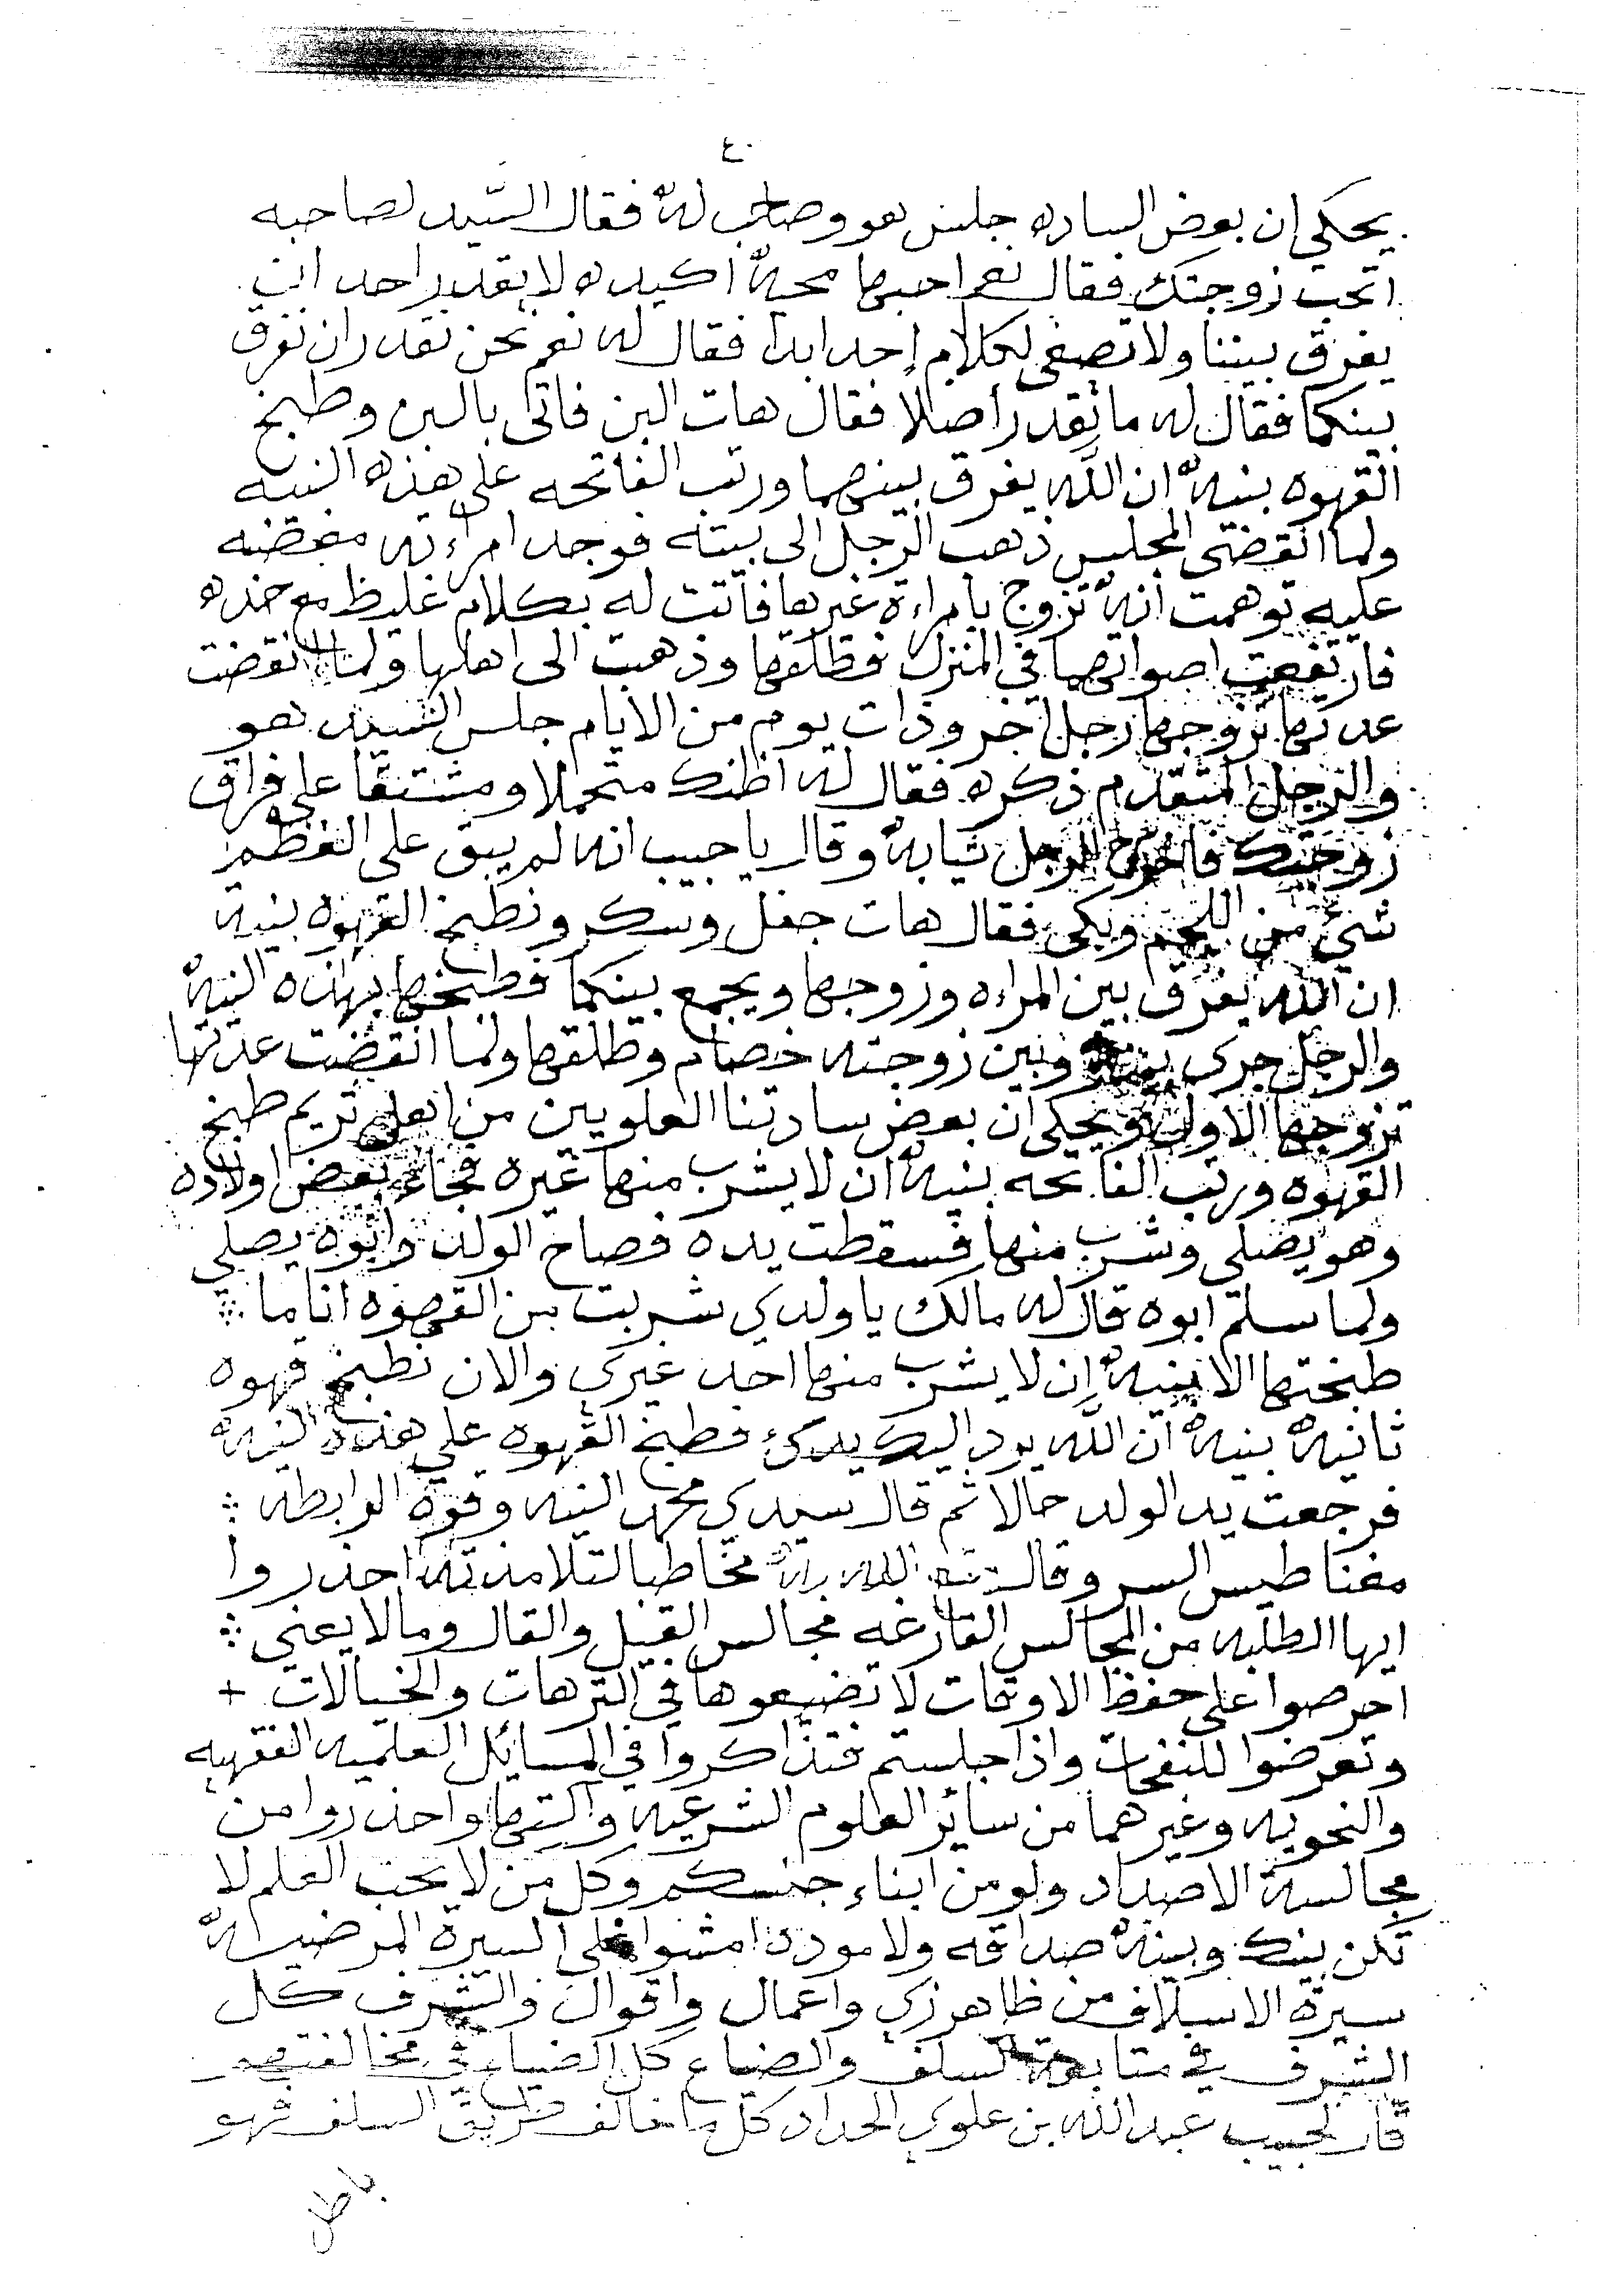 ٤٠
يحكي ان بعض الساده جلس هو وصاحب له فقال السّيد لصاحبه
اتحب زوجتك فقال نعم احبها محبة اكيده لا يقدر احد ان
يفرق بيننا ولا تصغى لكلام احد ابدا فقال له نعم نحن نقدر ان نفرق
بينكما فقال له ما تقدر أصلاً فقال هات البن فاتى بالبن وطبخ
القهوه بنية ان الله يفرق بينهما ورتب الفاتحه على هذه النيه
ولما انقضى المجلس ذهب الرجل الى بيته فوجد امراءته مغضبه
عليه توهمت أنه تزوج بامراءة غيرها فاتت له بكلام غليظ مع
فارتفعت اصواتهما في المنزل فطلقها وذهبت الى اهلها ولما انقضت
عدتها تزوجها رجل آخر وذات يوم من الأيام جلس السيد هو
والرجل المتقدم ذكره فقال له اظنك متحملا ومشتقا على فراق
زوجتك فاخرج الرجل ثيابه وقال يا حبيب انه لم يبق على العظم
شيء من اللحم وبكى فقال هات جفل وسكر ونطبخ القهوه بنية
ان الله يفرق بين المراءه وزوجها ويجمع بينكما فطبخها بهاذه النية
والرجل جرى بينه وبين زوجته خصام وطلقها ولما انقضت عدتها
تزوجها الاول ويحكى ان بعض سادتنا العلويين من اهل تريم طبخ
القهوه ورتب الفاتحه بنية ان لا يشرب منها غيره فجاء بعض اولاده
وهو يصلي وشرب منها فسقطت يده فصاح الولد وابوه يصلي
ولما سلم ابوه قال له مالك يا ولدي شربت من القهوه انا ما
طبختها الا بنية إن لا يشرب منها احد غيري والان نطبخ قهوه
ثانية بنية ان الله يرد اليك يدك فطبخ القهوه على هذه النية
فرجعت يد الولد حالا ثم قال سيدي محمد النيه وقوة الرابطه
مغناطيس السر وقال مخاطبا لتلامذته احذروا
ايها الطلبه من المجالس الفارغه مجالس القيل والقال وما لا يعني
احرصوا على حفظ الاوقات لا تضيعوها في الترهات والخيالات +
وتعرضوا للنفحات واذا جلستم فتذاكروا في المسايئل العلميه الفقهيه
والنحويه وغيرهما من سائر العلوم الشرعيه والتها واحذروا من
مجالسة الاضداد ولو من ابناء جنسكم وكل من لا يحب العلم لا
تكن بينك وبينه صداقه ولا موده امشوا على السيرة المرضية
سيرة الاسلاف من ظاهر زي واعمال واقوال والشرف كل
الشرف في متابعة السلف والضياع كل الضياع في مخالفتهم
قال الحبيب عبدالله بن علوي الحداد كل ما خالف طريق السلف فهو
باطل